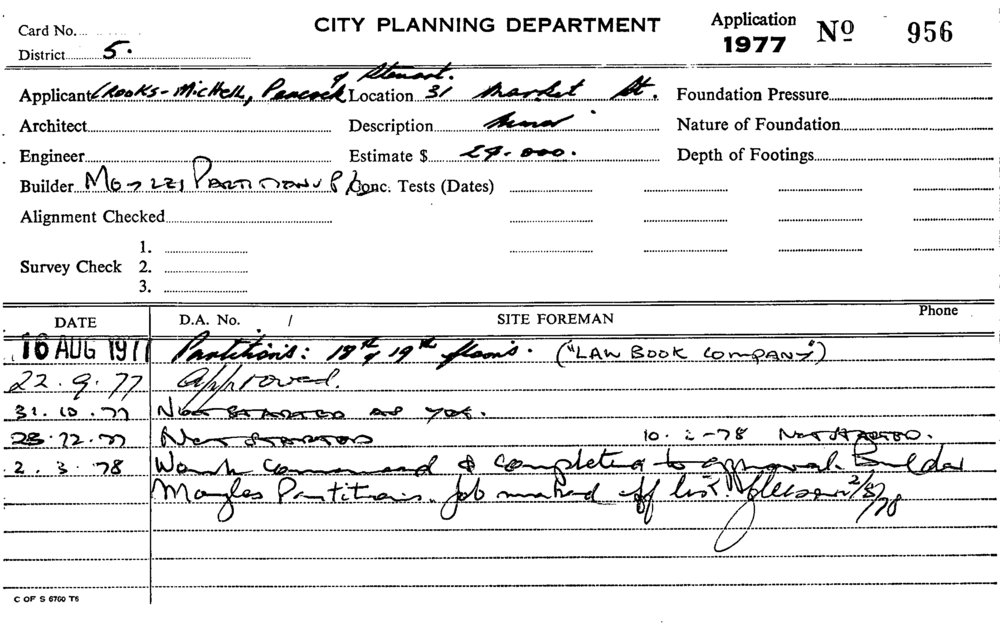 Card No. CITY PLANNING DEPARTMENT Application 1977 Nº 956
District 5.
& Stewart.
Applicant Crooks-Michell, Peacock Location 31 Market St. Foundation Pressure
Architect Description Nature of Foundation
Engineer Estimate $ 24.000. Depth of Footings
Builder Partitions P/L Conc. Tests (Dates)
Alignment Checked
1.
Survey Check 2.
3.
DATE D.A. No. / SITE FOREMAN Phone
16 AUG 1977 Partitions: 18th & 19th floors. ("LAW BOOK COMPANY")
22.9.77 Approved.
31.10.77 NOT STARTED AS YET.
23.12.77 NOT STARTED 10.2-78 NOT STARTED.
2.3.78 Work commenced & completed to approval. Builder
Moyles Partitions. Job marked off list. 2/3/78
C OF S 6760 T6